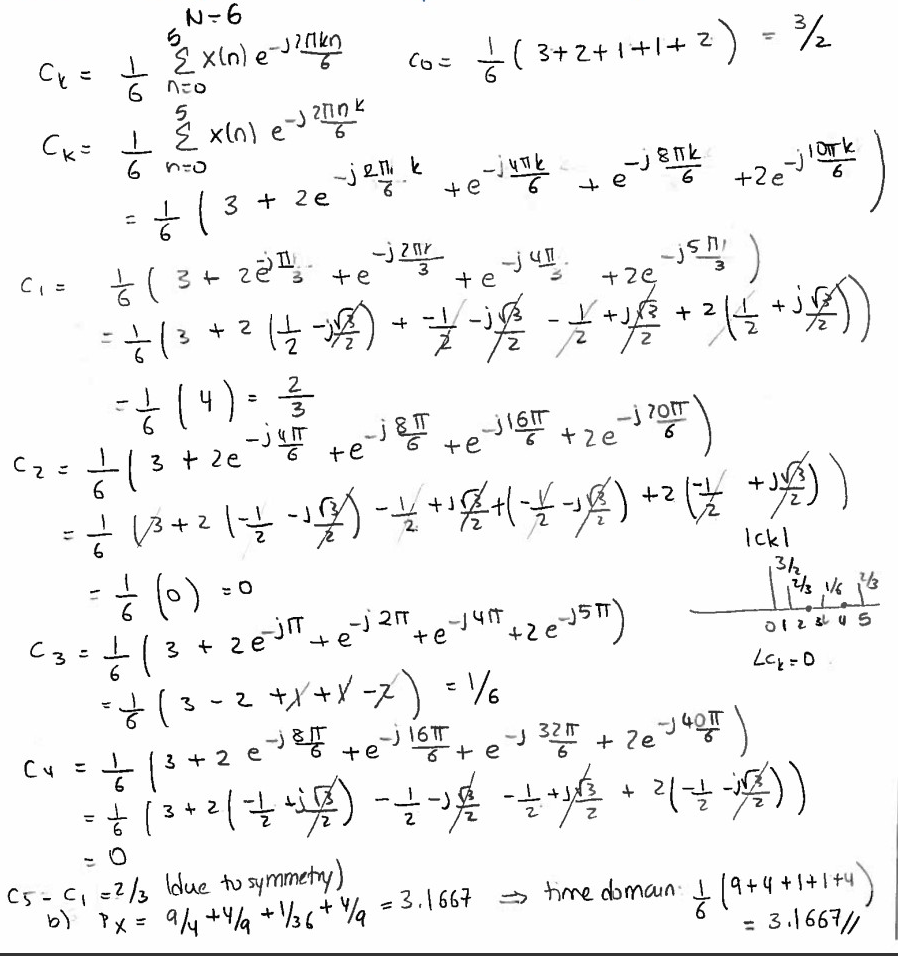 N=6
C_k = 1/6 5 Σ n=0 x(n) e^{-j2πkn/6} c_0 = 1/6 ( 3+2+1+1+2 ) = 3/2
C_k = 1/6 5 Σ n=0 x(n) e^{-j2πnk/6}
= 1/6 ( 3 + 2e^{-j2π/6 k} + e^{-j4πk/6} + e^{-j8πk/6} + 2e^{-j10πk/6} )
C_1 = 1/6 ( 3 + 2e^{-jπ/3} + e^{-j2π/3} + e^{-j4π/3} + 2e^{-j5π/3} )
= 1/6 ( 3 + 2 ( 1/2 - j√3/2 ) + -1/2 - j√3/2 - 1/2 + j√3/2 + 2 ( 1/2 + j√3/2 ) )
= 1/6 ( 4 ) = 2/3
C_2 = 1/6 ( 3 + 2e^{-j4π/6} + e^{-j8π/6} + e^{-j16π/6} + 2e^{-j20π/6} )
= 1/6 ( 3 + 2 ( -1/2 - j√3/2 ) - 1/2 + j√3/2 + ( -1/2 - j√3/2 ) + 2 ( -1/2 + j√3/2 ) )
= 1/6 ( 0 ) = 0
|ck|
3/2 2/3 1/6 2/3
0 1 2 3 4 5
∠C_k = 0
C_3 = 1/6 ( 3 + 2e^{-jπ} + e^{-j2π} + e^{-j4π} + 2e^{-j5π} )
= 1/6 ( 3 - 2 + 1 + 1 - 2 ) = 1/6
C_4 = 1/6 ( 3 + 2 e^{-j8π/6} + e^{-j16π/6} + e^{-j32π/6} + 2e^{-j40π/6} )
= 1/6 ( 3 + 2 ( -1/2 + j√3/2 ) - 1/2 - j√3/2 - 1/2 + j√3/2 + 2 ( -1/2 - j√3/2 ) )
= 0
C_5 - C_1 = 2/3 (due to symmetry)
b) P_x = 9/4 + 4/9 + 1/36 + 4/9 = 3.1667 ⇒ time domain: 1/6 ( 9+4+1+1+4 )
= 3.1667//